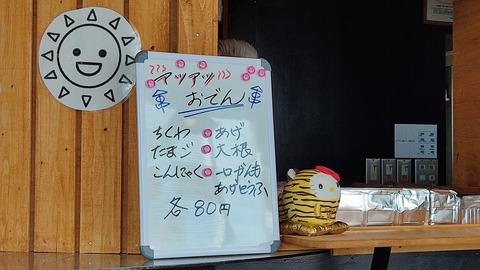 アツアツ
おでん
ちくわ あげ
たまご 大根
こんにゃく 一口がんも
あげどうふ
各80円